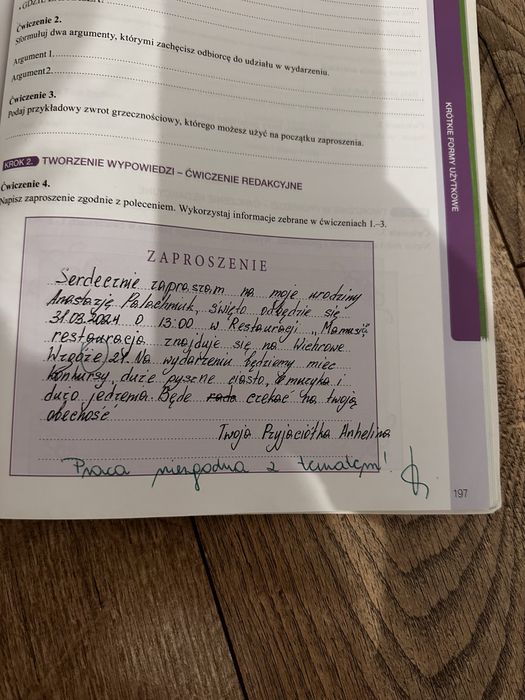 Ćwiczenie 2.
Sformułuj dwa argumenty, którymi zachęcisz odbiorcę do udziału w wydarzeniu.
Argument 1.
Argument 2.
Ćwiczenie 3.
Podaj przykładowy zwrot grzecznościowy, którego możesz użyć na początku zaproszenia.
KROK 2. TWORZENIE WYPOWIEDZI – ĆWICZENIE REDAKCYJNE
Ćwiczenie 4.
Napisz zaproszenie zgodnie z poleceniem. Wykorzystaj informacje zebrane w ćwiczeniach 1.–3.
ZAPROSZENIE
Serdecznie zapraszam na moje urodziny
Anastazję święto odbędzie się
31.03.2024 o 13:00 w Restauracji „Mamusi"
restauracja znajduje się na
21. Na wydarzeniu będziemy mieć
konkursy, duże pyszne ciasto, muzyka i
dużo jedzenia. Będe czekać na twoją
obecność
Twoja Przyjaciółka Anhelina
Praca niezgodna z tematem!
KRÓTKIE FORMY UŻYTKOWE
197